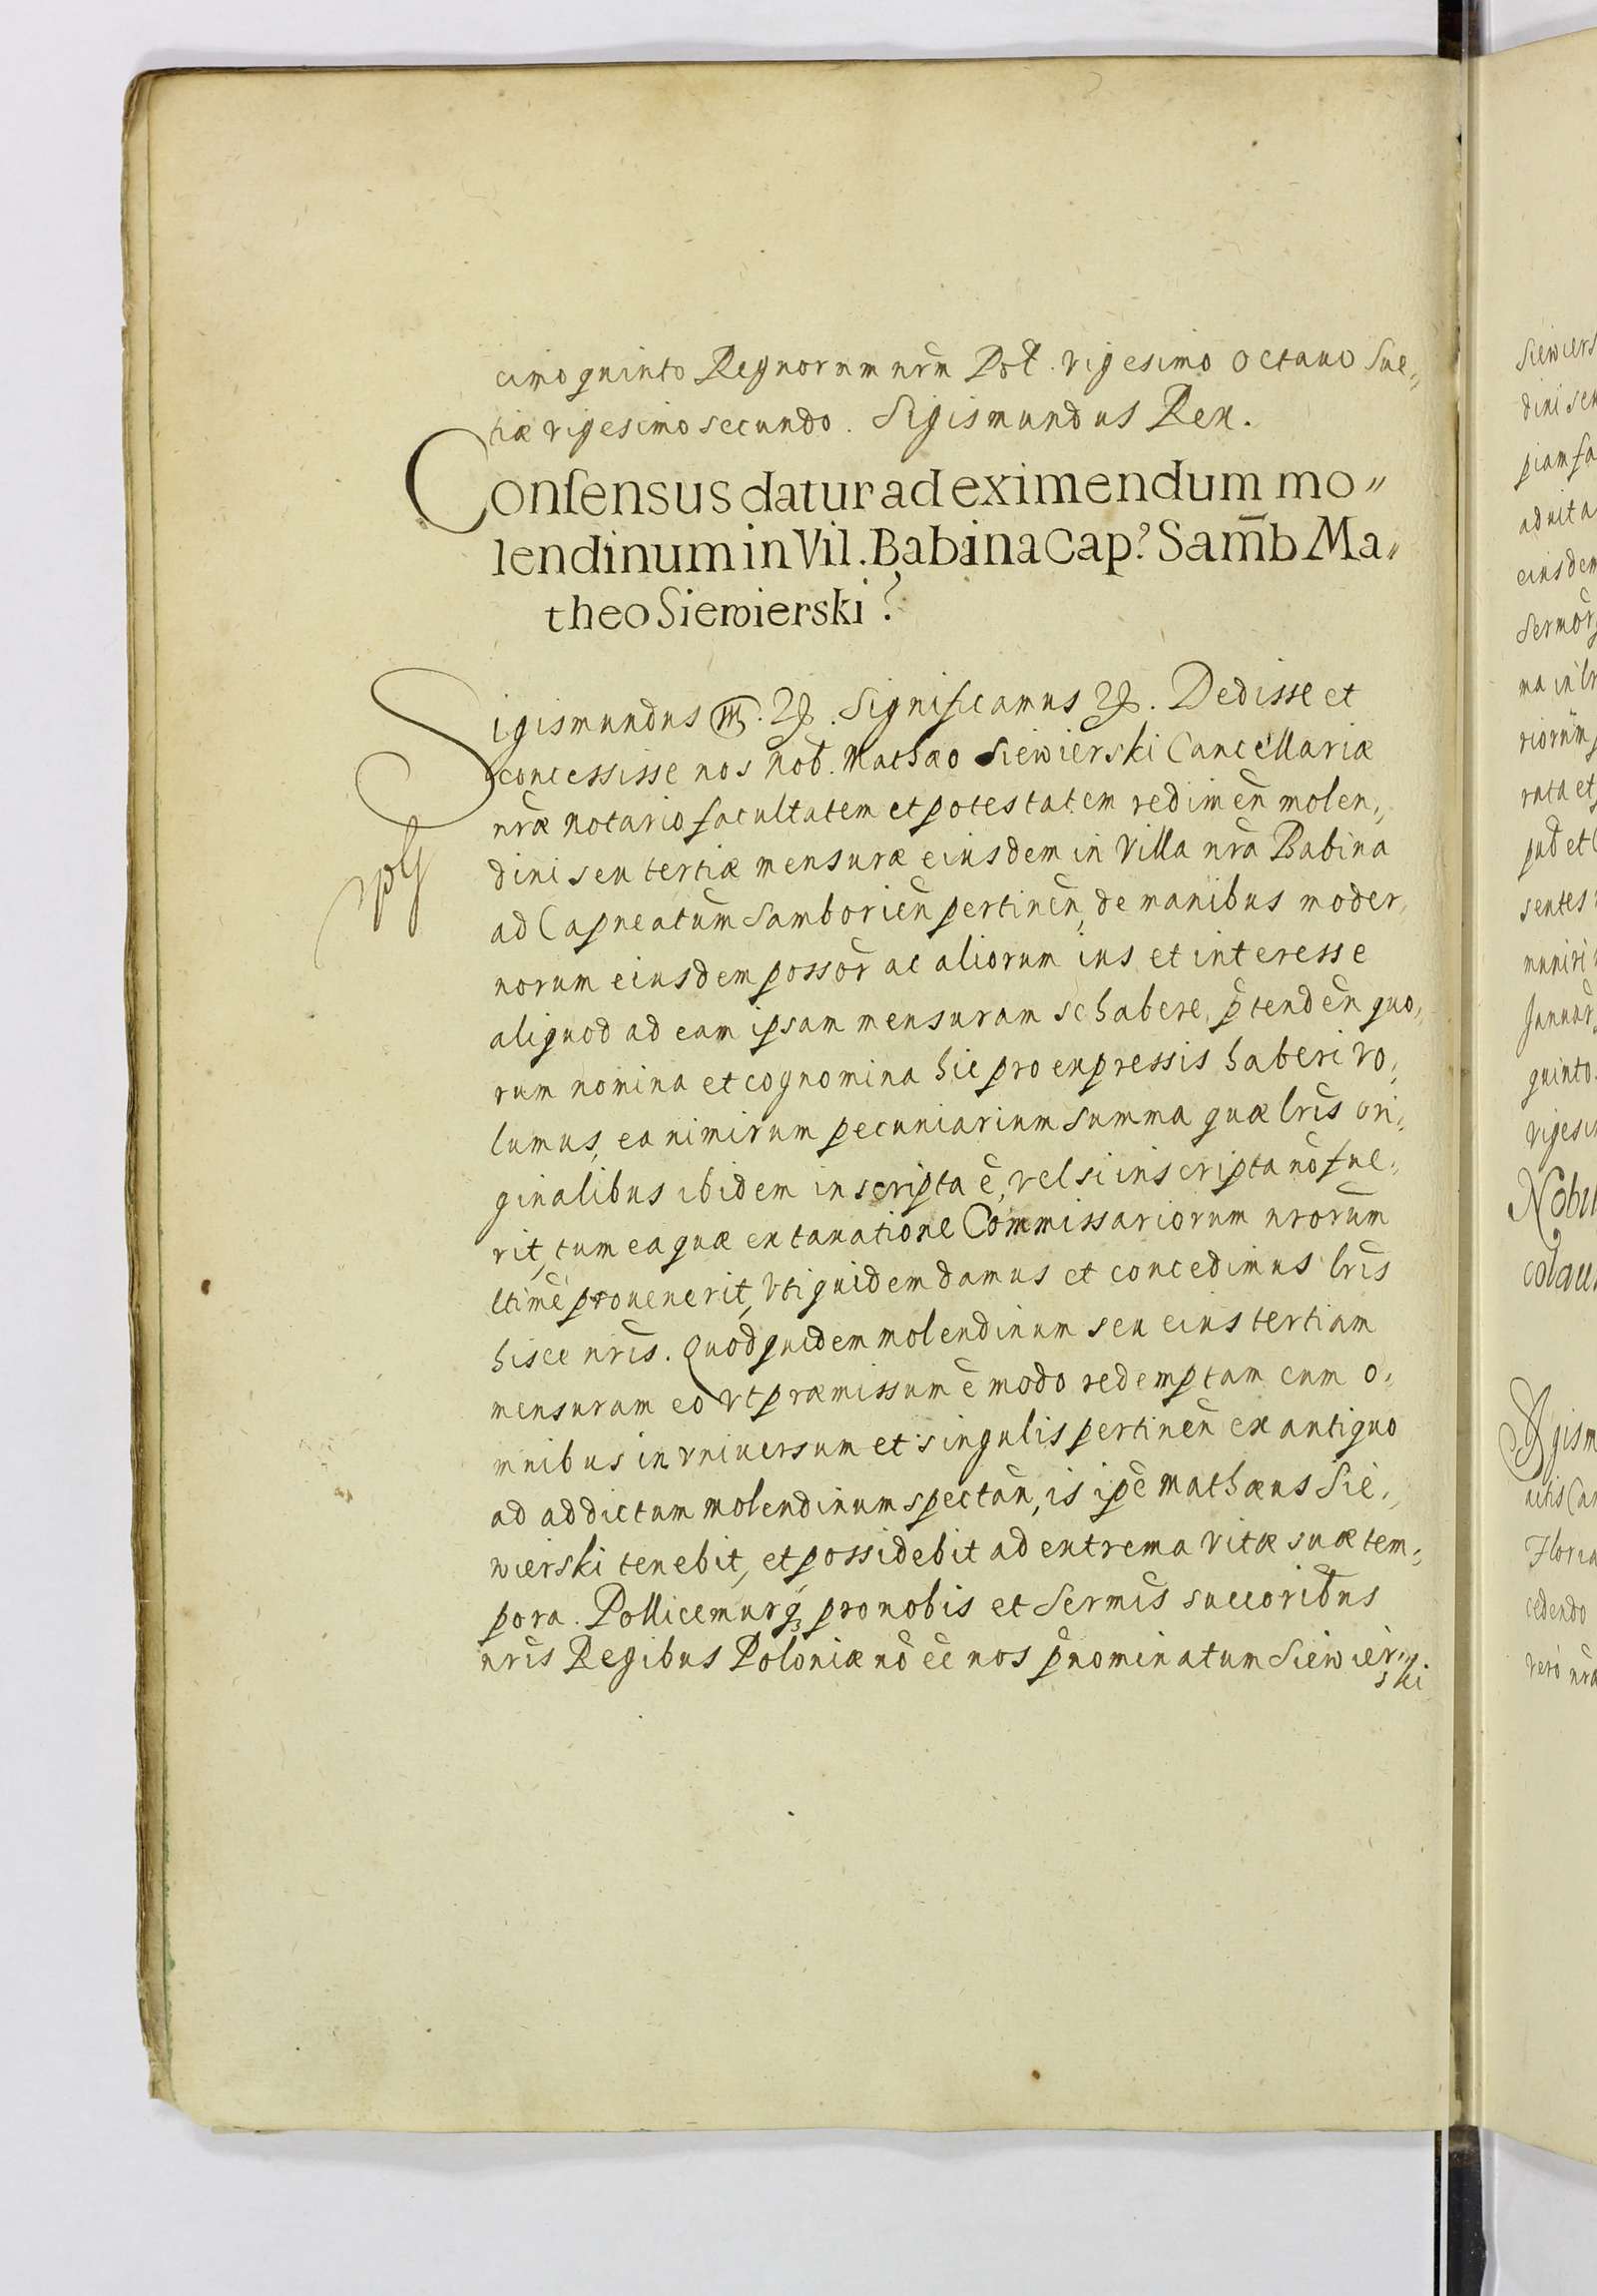 cimo quinto Regnorum nrm̄ Pol. vigesimo octauo Sue„
tiæ vigesimo secundo. Sigismundus Rex.
Consensus datur ad eximendum mo„
lendinum in Vil. Babina Cap: Sam̄b Ma„
theo Siewierski:
Sigismundus III. Significamus Dedisse et
concessisse nos Nob. Mathæo Siewierski Cancellariæ
nræ Notario facultatem et potestatem redimen̄ molen„
dini seu tertiæ mensuræ eiusdem in Villa nrā Babina
ad Capneatum Samborien̄ pertinen̄, de manibus moder„
norum eiusdem possor̄ ac aliorum ius et interesse
aliquod ad eam ipsam mensuram se habere, p̄tenden̄ quo„
rum nomina et cognomina hic pro expressis haberi vo„
lumus, ea nimirum pecuniarium summa quæ lrīs ori„
ginalibus ibidem inscripta ē, vel si inscripta nō fue„
rit, tum ea quæ ex taxatione Commissariorum nrorūm
ltimē prouenerit, Vti quidem damus et concedimus lrīs
hisce nrīs. Quod quidem molendinum seu eius tertiam
mensuram eo vt præmissum ē modo redemptam cum o„
mnibus in vniuersum et singulis pertinen̄ ex antiquo
ad addictum molendinum spectan̄, is ipē Mathæus Sie„
wierski tenebit, et possidebit ad extrema vitæ suæ tem„
pora. Pollicemurq̨ pro nobis et Sermīs succoribūs
nrīs Regibus Poloniæ nō eē nos p̄nominatum Siewier„
ski
Siewiers
dini seu
piam fa
ad vita
eiusdem
Sermor
ma in lr
riorum
rata et
pud et
sentes
muniri
Januar
quinto
vigesi
Nobil
colau
Sigism
uitis Ca
Floria
cedendo
vero nrā